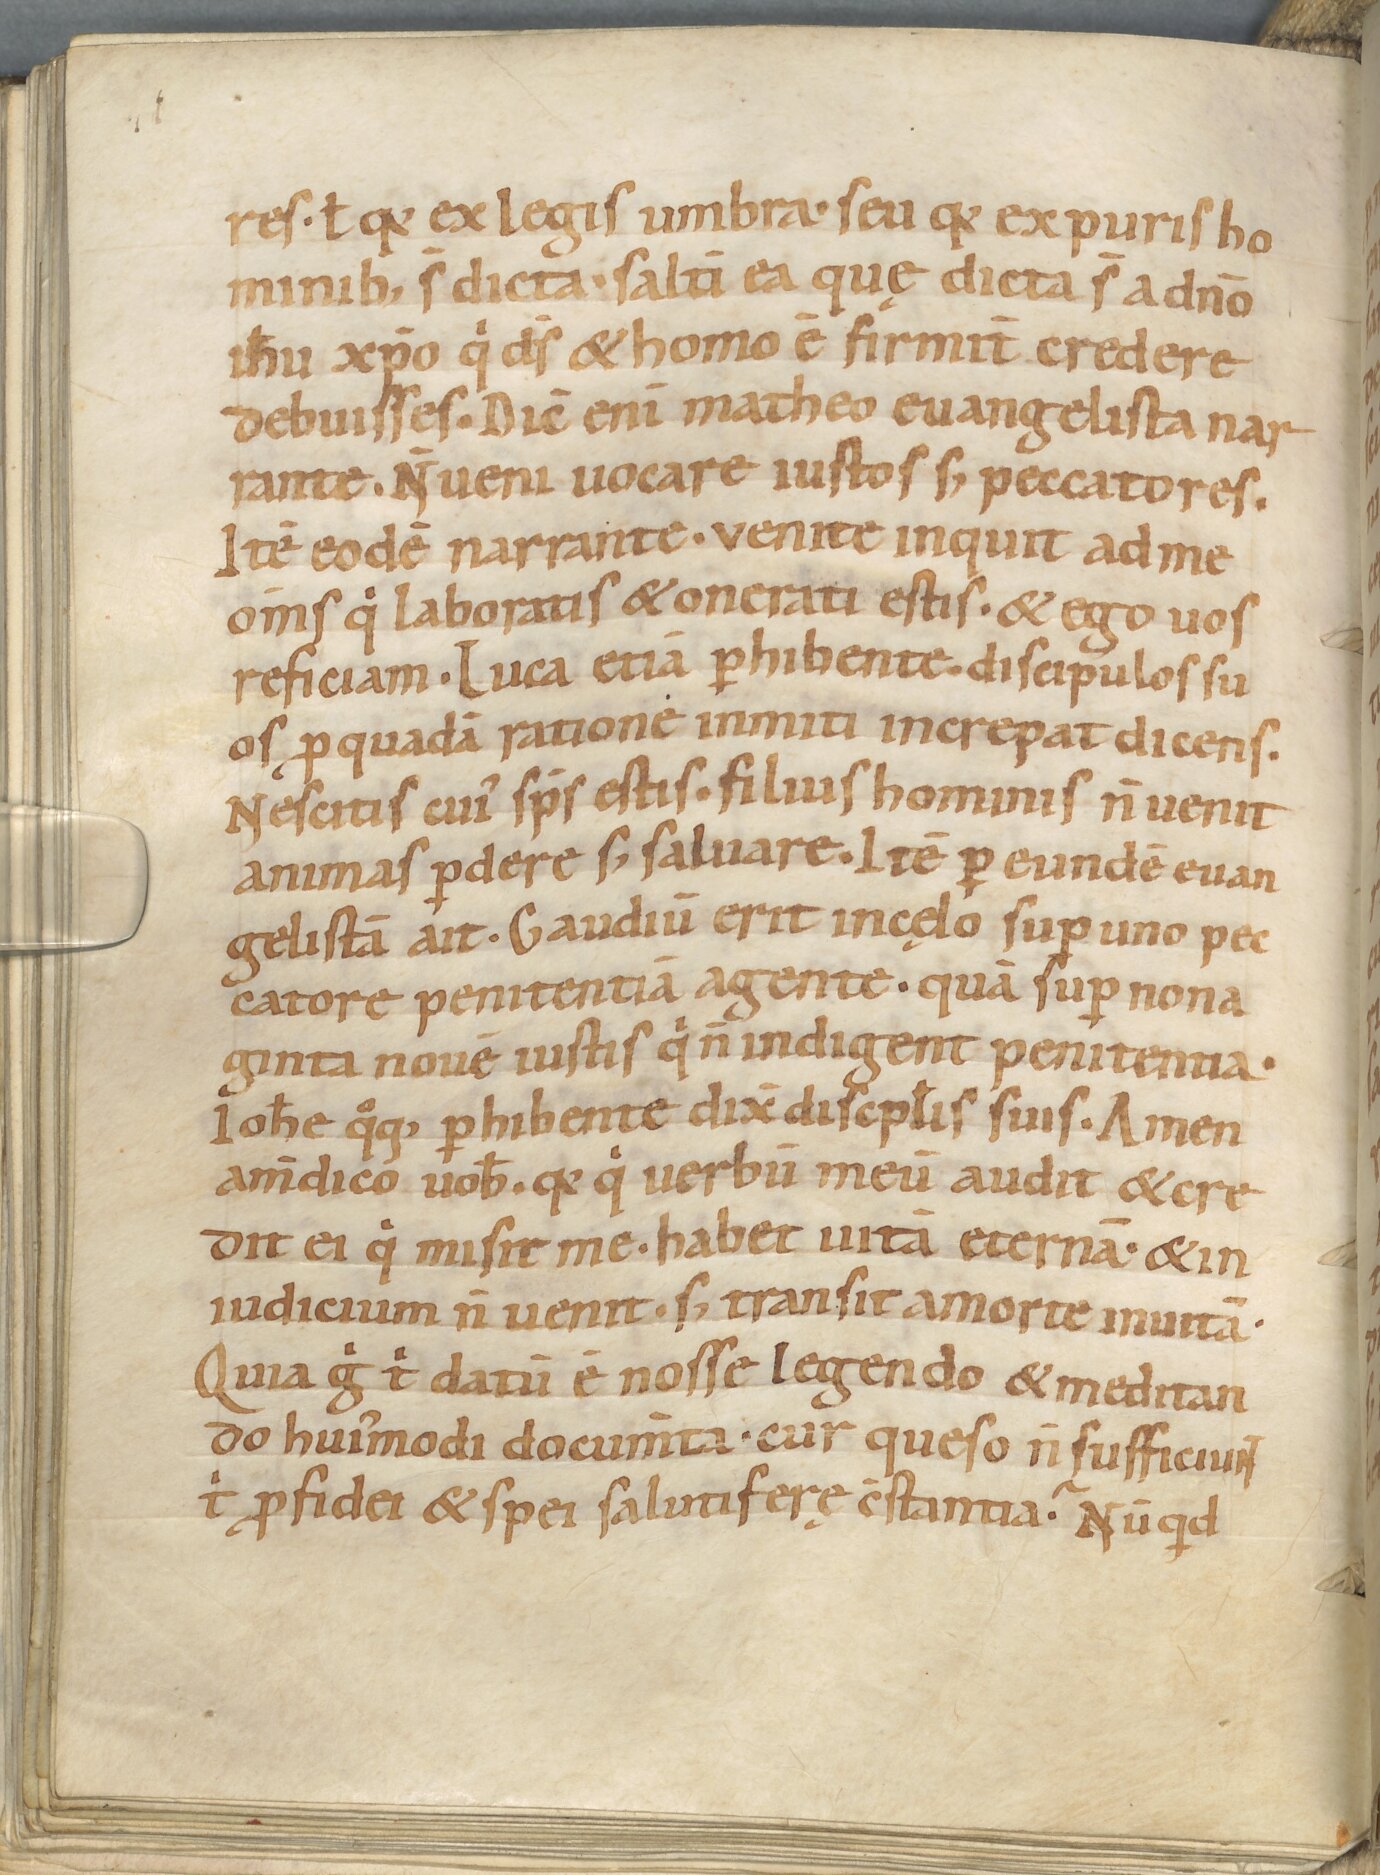 res· ł qꝫ ex legis umbra· seu qꝫ ex puris ho
minib; s̄ dicta· saltī ea quę dicta s̄ a dn̄o
ih̄u xp̄o qͥ d̄s & homo ē firmit̄ credere
debuisses. Dic̄ enī matheo euangelista nar
rante. N̄ ueni uocare iustos s; peccatores.
Itē eodē narrante· venite inquit ad me
om̄s qͥ laboratis & onerati estis· & ego uos
reficiam· Luca etiā ꝑhibente· discipulos su
os ꝓ quadā ratione inmiti increpat dicens.
Nescitis cuiꝰ sp̄s estis· filius hominis n̄ uenit
animas ꝑdere s; saluare. Itē ꝑ eundē euan
gelistā ait· Gaudiū erit in cęlo suꝑ uno pec
catore penitentiā agente· quā suꝑ nona
ginta nouē iustis qͥ n̄ indigent penitentia·
Ioh̄e qͦq; ꝑhibente dix̄ discpl̄is suis· Amen
am̄ dico uob̄· qꝫ qͥ uerbū meū audit & cre
dit ei qͥ misit me· habet uitā eternā· & in
iudicium n̄ uenit· s; transit a morte in uitā·
Quia gͥ tͥ datū ē nosse legendo & meditan
do huiꝰmodi docum̄ta· cur queso n̄ sufficiunt
tͥ ꝓ fidei & spei salutiferę c̄stantia·͂ Nūqd